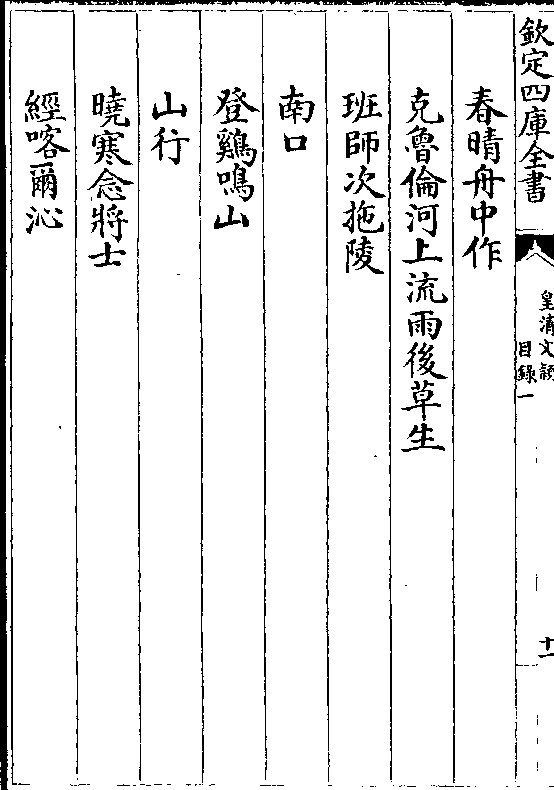 欽定四庫全書
皇清文頴
目録一
十一
春晴舟中作
克魯倫河上流雨後草生
班師次拖陵
南口
登鷄鳴山
山行
曉寒念將士
經喀爾沁